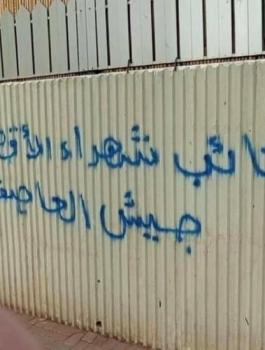 تائب شهداء الأقص
جيش العاصف